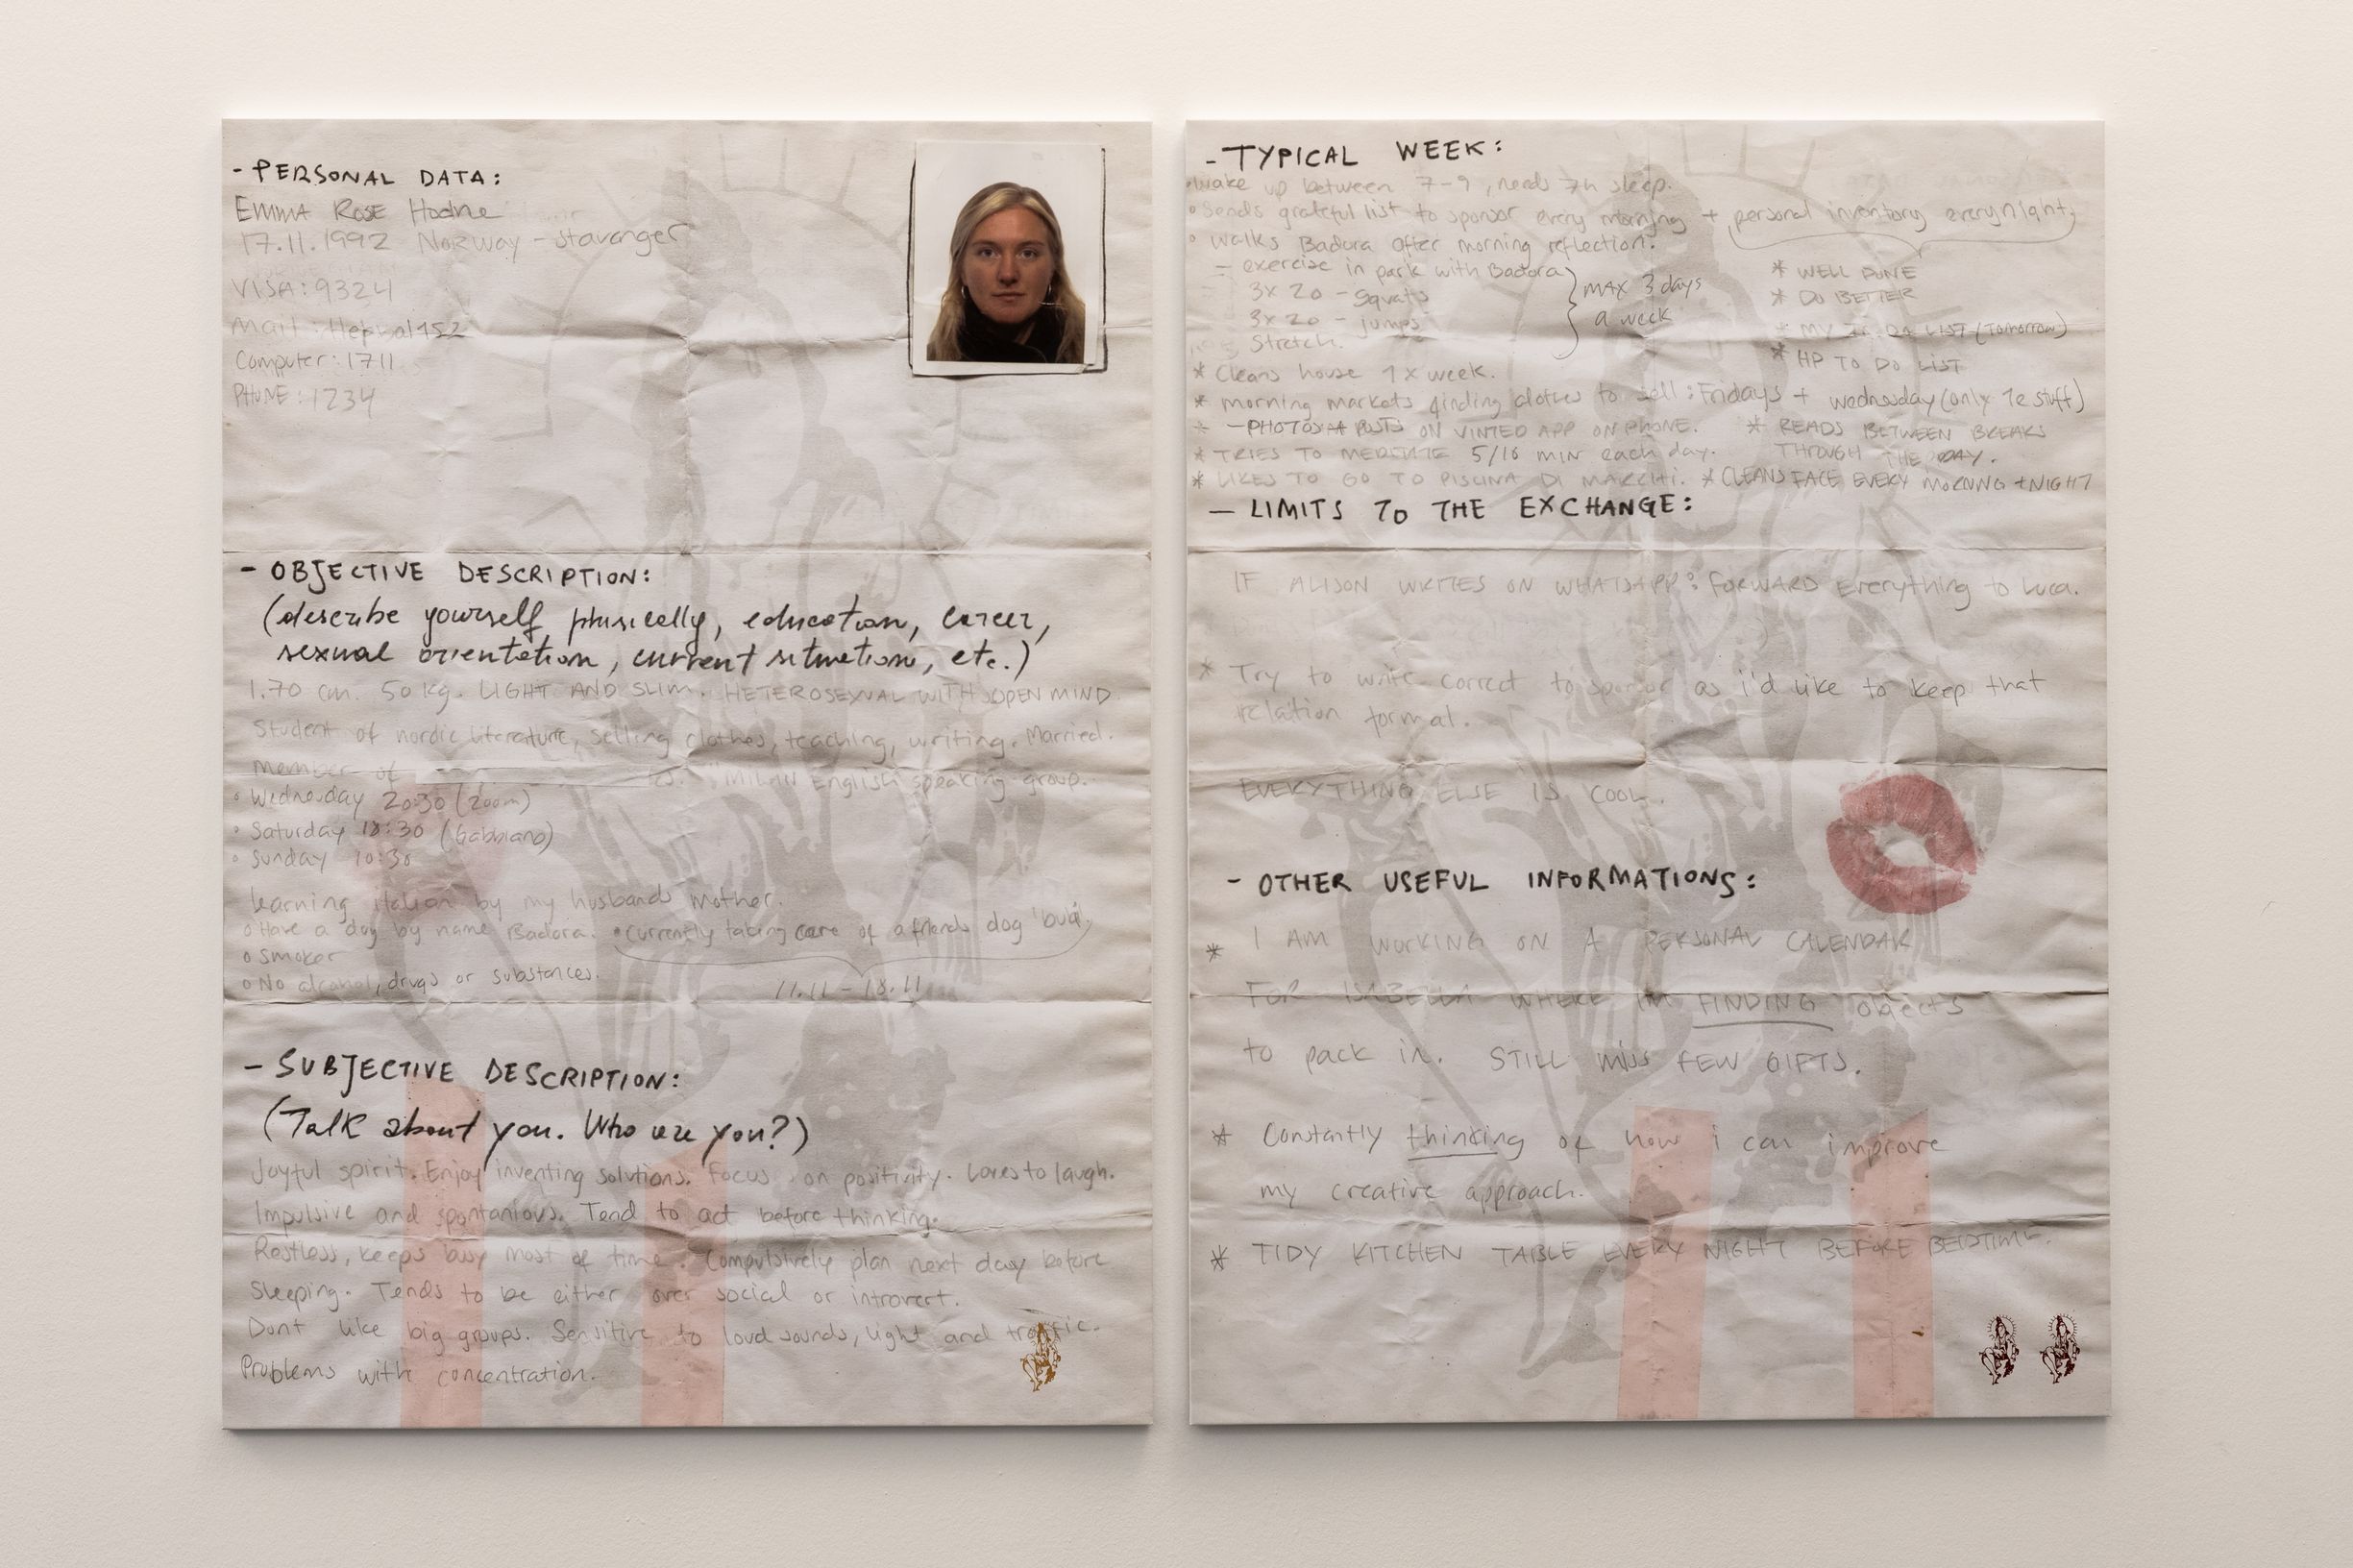 - PERSONAL DATA:
EMMA ROSE Hodne
17.11.1992 NORWAY - Stavanger
VISA: 9324
Mail:
Computer: 1711
PHONE: 1234
- OBJECTIVE DESCRIPTION:
(describe yourself phisically, education, career,
sexual orientation, current situation, etc.)
1.70 cm. 50 kg. LIGHT AND SLIM. HETEROSEXUAL WITH OPEN MIND
Student of nordic literature, selling clothes, teaching, writing. Married.
member of MILAN English speaking group.
• Wednesday 20:30 (zoom)
• Saturday 18:30 (Gabbiano)
• Sunday 10:30
learning italian by my husbands mother.
o Have a dog by name Badora. • currently taking care of a friends dog 'bubi'
o Smoker
o No alcohol, drugs or substances. 11.11 - 18.11
- SUBJECTIVE DESCRIPTION:
(Talk about you. Who are you?)
Joyful spirit. Enjoy inventing solutions. Focus on positivity. Loves to laugh.
Impulsive and spontanious. Tend to act before thinking.
Restless, keeps busy most of time. Compulsively plan next day before
sleeping. Tends to be either over social or introvert.
Dont like big groups. Sensitive to loud sounds, light and traffic.
Problems with concentration.
- TYPICAL WEEK:
• wake up between 7-9, needs 7h sleep.
• Sends grateful list to sponsor every morning + personal inventory everynight
• walks Badora after morning reflection.
= exercise in park with Badora
3x 20 - Squats
3x 20 - jumps
Stretch.
MAX 3 days
a week
* WELL DONE
* DO BETTER
* MY TO DO LIST (Tomorrow)
* HP TO DO LIST
* Cleans house 1 x week.
* morning markets finding clothes to sell: Fridays + wednesday (only 1e stuff)
- PHOTOS POSTS ON VINTED APP ON PHONE.
* READS BETWEEN BREAKS
THROUGH THE DAY.
* TRIES TO MEDITATE 5/10 min each day.
* LIKES TO GO TO PISCINA DI MARCHI. * CLEANS FACE EVERY MORNING + NIGHT
- LIMITS TO THE EXCHANGE:
IF ALISON WRITES ON WHATSAPP: FORWARD Everything to Luca.
* Try to write correct to sponsor as i'd like to keep that
relation formal.
EVERYTHING ELSE IS COOL.
- OTHER USEFUL INFORMATIONS:
* I AM WORKING ON A PERSONAL CALENDAR
FOR ISABELLA WHERE IM FINDING objects
to pack in. STILL miss FEW GIFTS.
* Constantly thinking of how i can improve
my creative approach.
* TIDY KITCHEN TABLE EVERY NIGHT BEFORE BEDTIME.